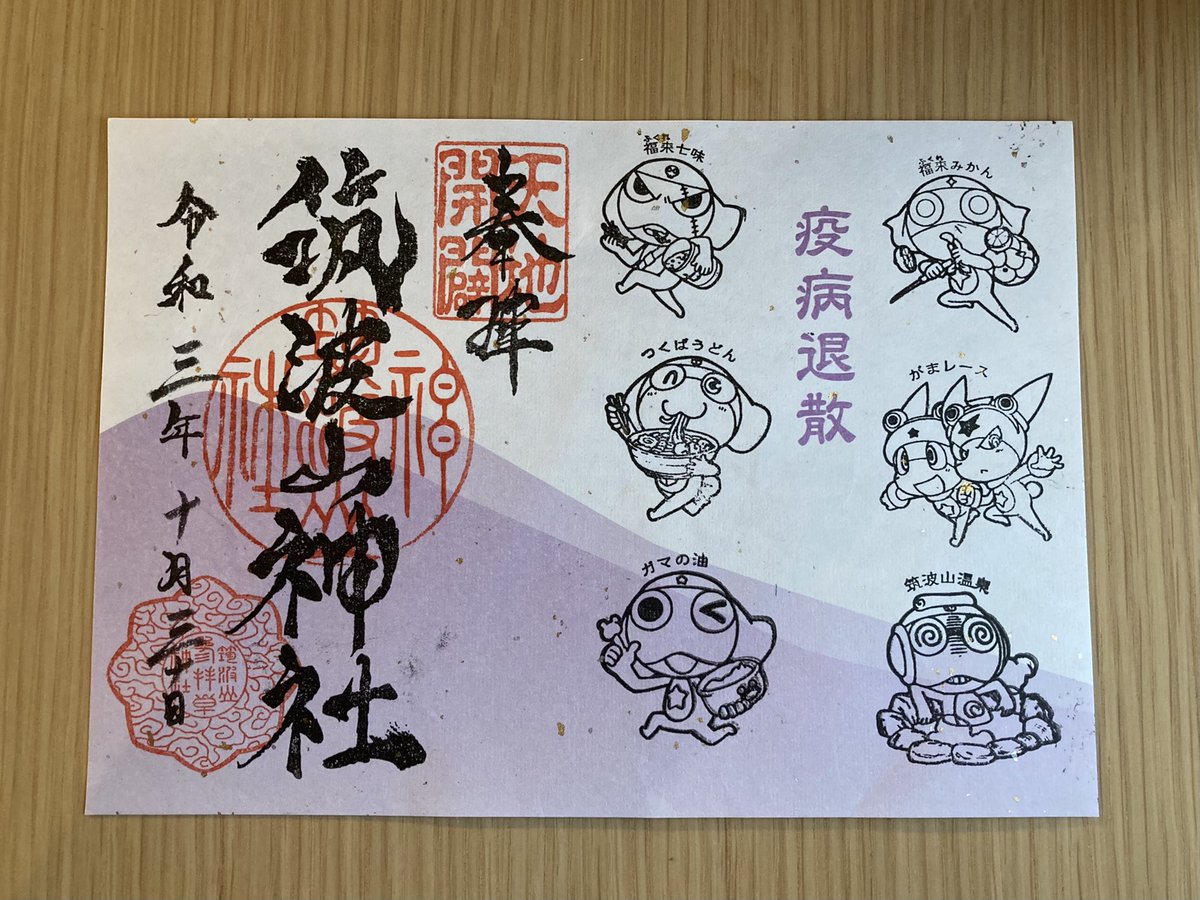 ふくれ
福来みかん
がまレース
筑波山温泉
疫病退散
ふくれ
福来七味
つくばうどん
ガマの油
奉拝
天地開闢
筑波山神社
令和三年十月三十日